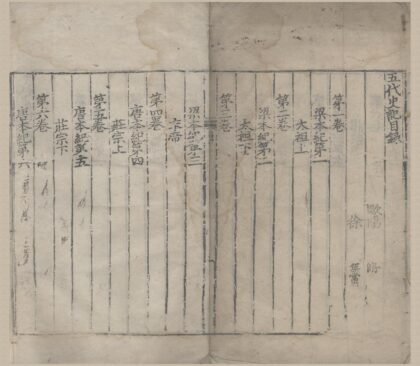 五代史記目錄
歐陽 脩
徐 無黨
第一卷
梁本紀第一
太祖上
第二卷
梁本紀第二
太祖下
第三卷
梁本紀第三
末帝
第四卷
唐本紀第四
莊宗上
第五卷
唐本紀第五
莊宗下
第六卷
唐本紀第六